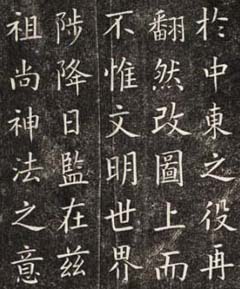 於中東之役再
翻然改圖上而
不惟文明世界
陟降日監在兹
祖尚神法之意